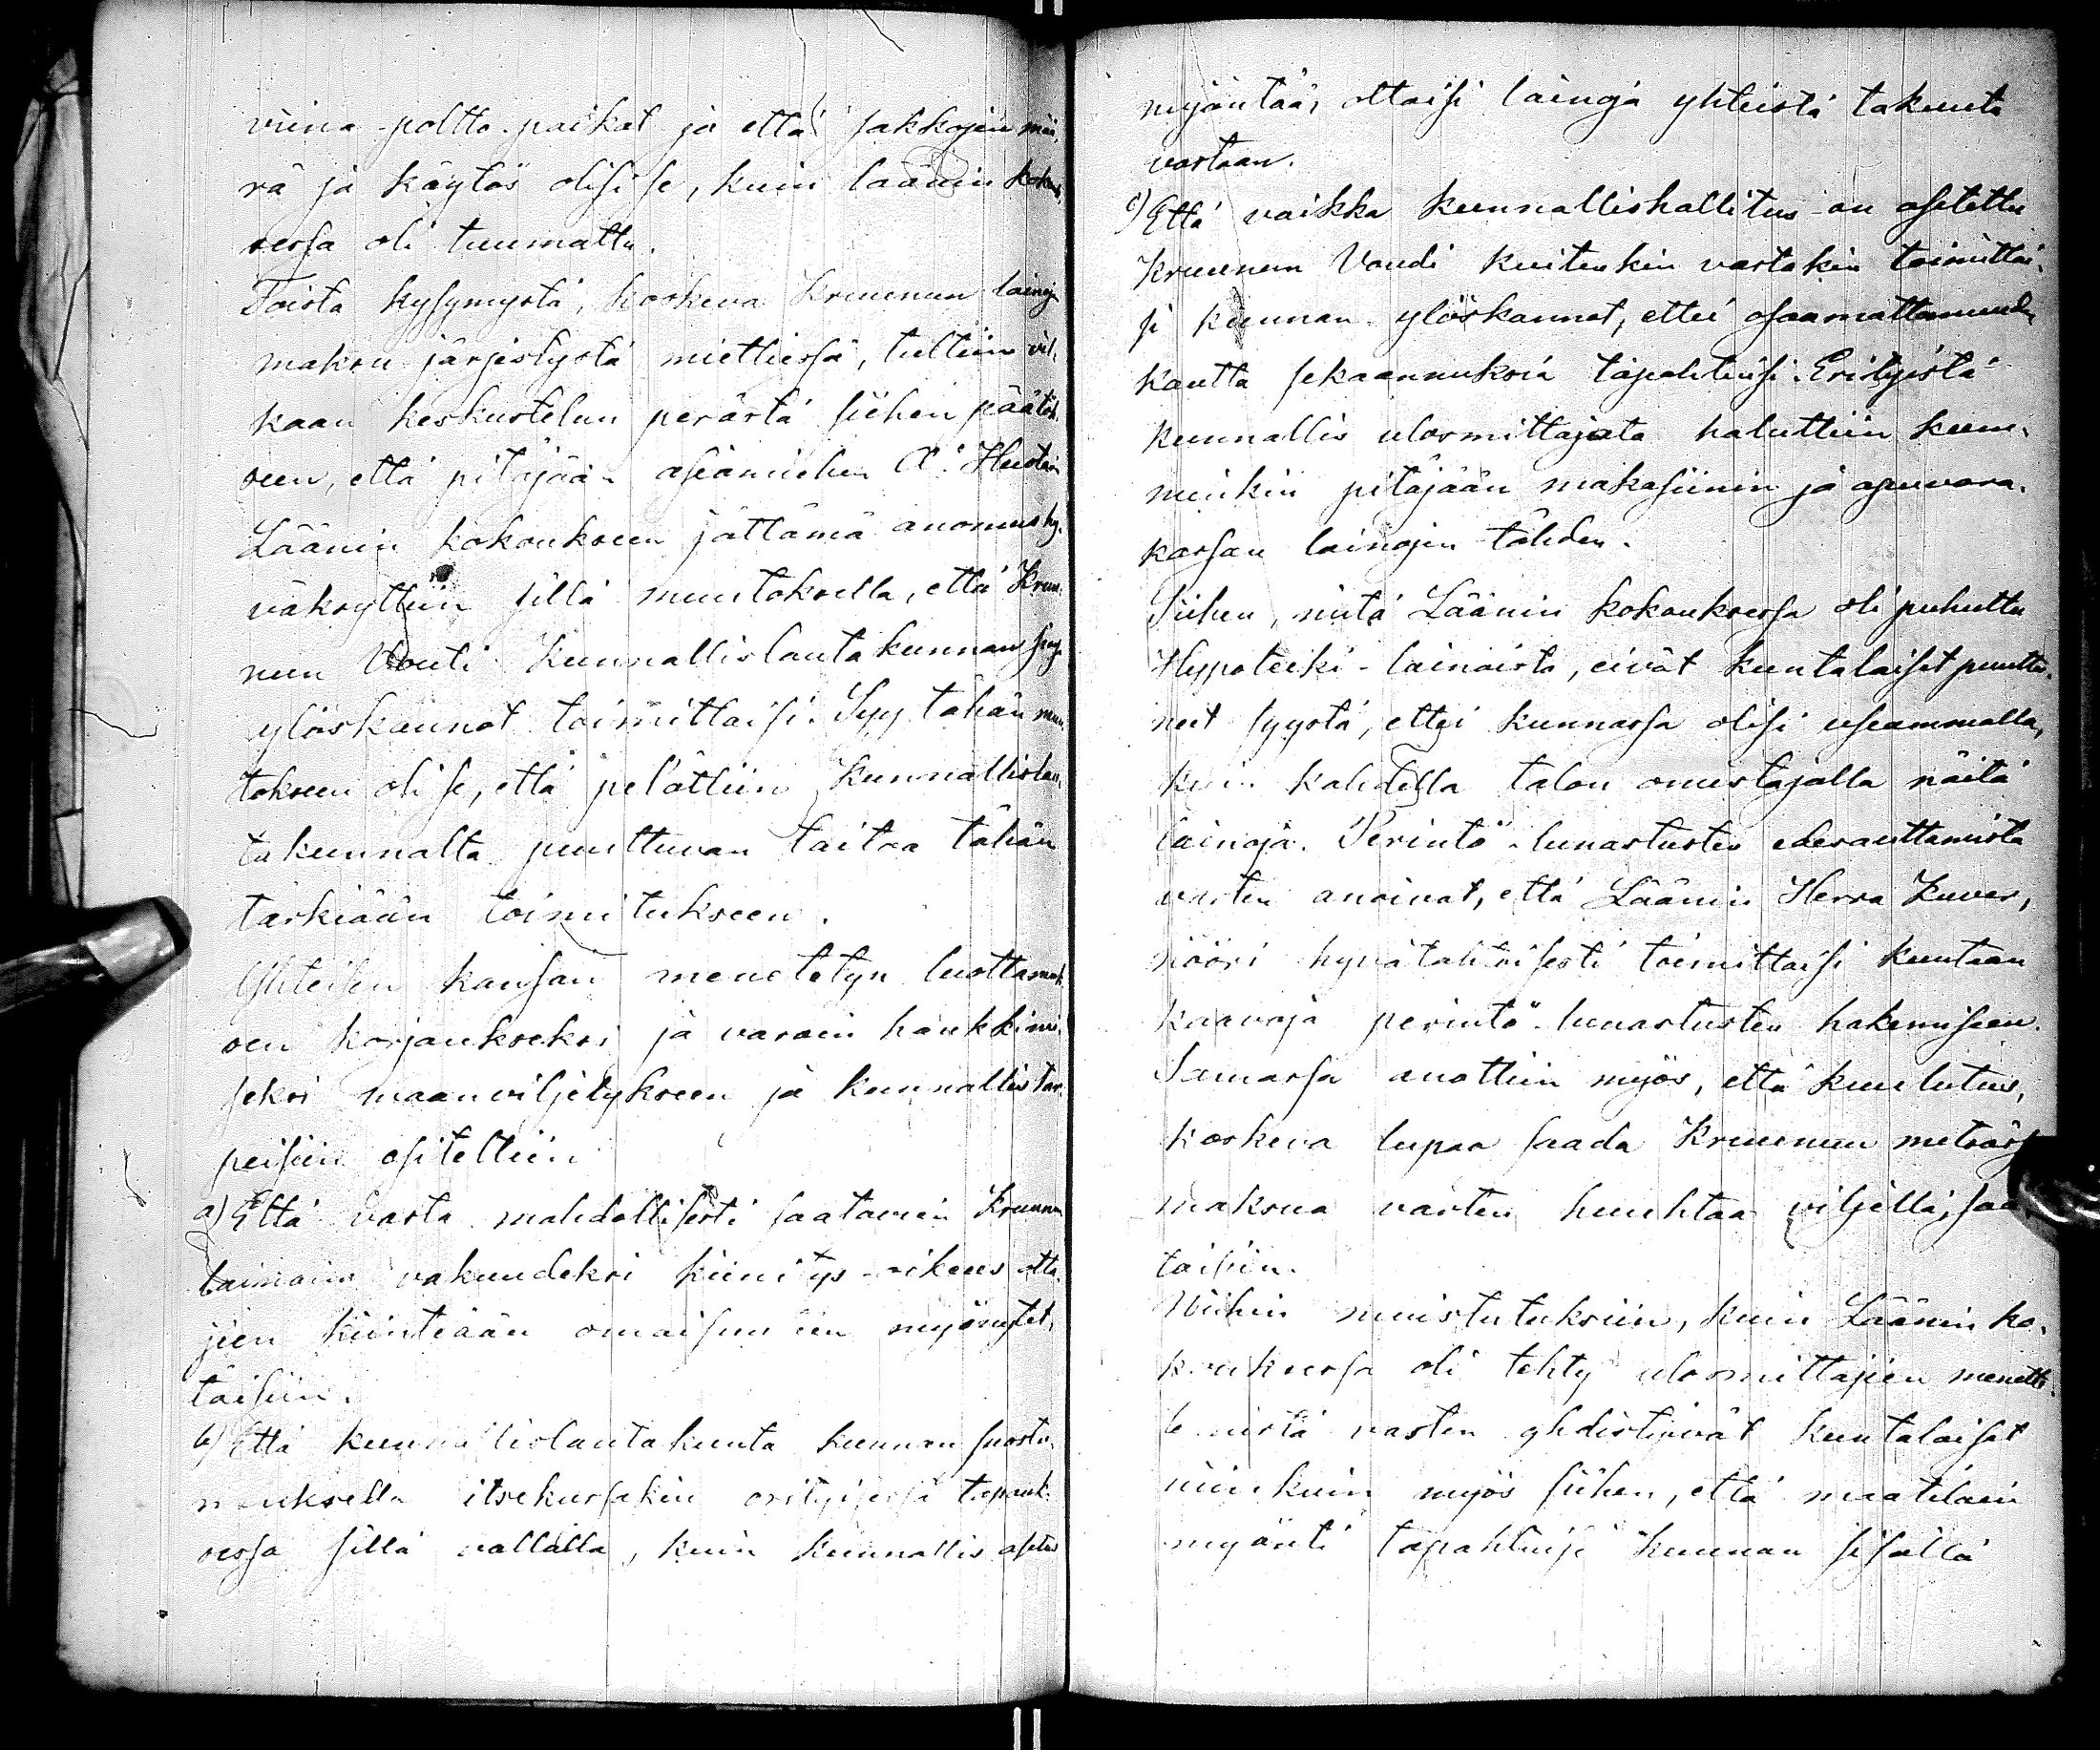 viina-poltto-paikat ja että sakkojen mää,
rä ja käytös olisi se, kuin läänin kokouk,
sessa oli tuumattu.
Toista kysymystä, koskeva Kruunun lainoj
maksu järjestystä miettiessä, tultiin vil,
kaan keskustelun perästä siihen päätök,
seen, että pitäjään asiamiehen A. Husten
Läänin kokoukseen jättämä anomus hy,
väksyttiin sillä muutoksella, että Kruu,
nun Vouti Kunnallislautakunnan
ylöskannot toimittaisi. Syy tähän muu,
tokseen oli se, että pelättiin Kunnallislau,
takunnalta puuttuvan taitoa tähän
tärkiään toimitukseen.
Yhteisen kansan menetetyn luottamuk,
sen korjaukseksi ja varain hankkimi,
seksi maanviljelykseen ja kunnallis tar,
peisiin esitettiin
a) Että vasta mahdollisesti saatavain Kruunun
lainain vakuudeksi kiinitys-oikeus otta,
jien kiinteään omaisuuteen myönnytet,
täisiin.
b) Että kunnallislautakunta kunnan suostu,
muksella itsekussakin erityisessä tapauk,
sessa sillä vallalla, kuin kunnallis asetus
myöntää, ottaisi lainoja yhteistä takuuta
vastaan.
c) Että vaikka kunnallishallitus on asetettu
Kruunun Voudi kuitenkin vastakin toimittai,
si kunnan ylöskannot, ettei osaamattomuuden
kautta sekaannuksia tapahtuisi. Erityistä
kunnallis ulosmittajata haluttiin kuu,
minkin pitäjään makasiinin ja apuvara,
kassan lainojen tähden.
Siihen, mitä Läänin kokouksessa oli puhuttu
Hypoteeki-lainoista, eivät kuntalaiset puuttu,
neet syystä, ettei kunnassa olisi useammalla,
kuin kahdella talon omistajalla näitä
lainoja. Perintö-lunastusten edesauttamista
varten anoivat, että Läänin Herra Kuver,
nööri hyväntahtoisesti toimittaisi kuntaan
kaavoja perintö-lunastusten hakemiseen.
Samassa anottiin myös, että kuulutus,
koskeva lupaa saada Kruunun metsässä
maksua vasten huuhtaa viljellä, saa
taisiin.
Niihin muistutuksiin, kuin Läänin ko,
kouksessa oli tehty ulosmittajien menette,
lemistä vasten yhdistivät kuntalaiset
niinkuin myös siihen, että maatilain
myönti tapahtuisi kunnan sisällä